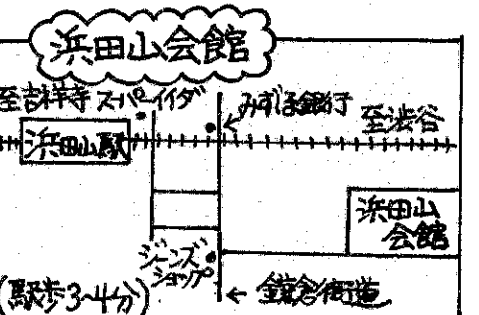 浜田山会館
至吉祥寺 スーパーイイダ
みずほ銀行
至渋谷
浜田山駅
浜田山
会館
ジーンズ
ショップ
(駅歩3~4分)
← 鎌倉街道